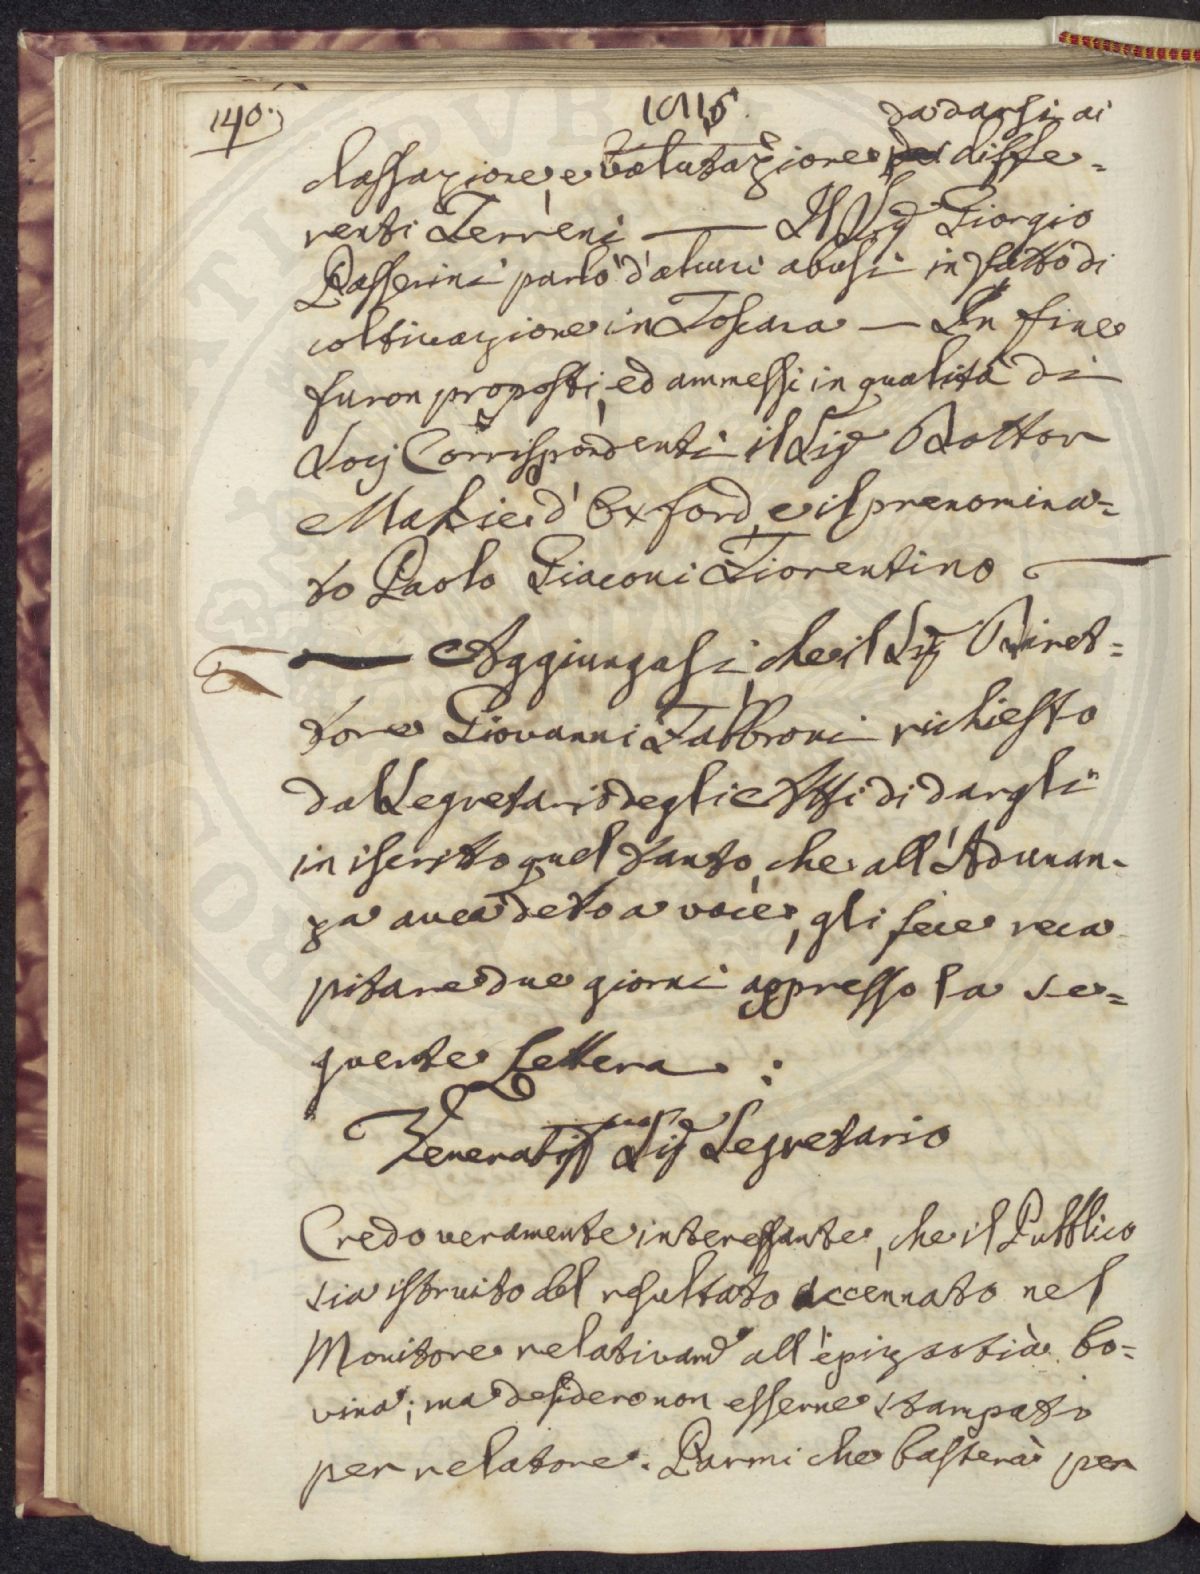 140.
1815.
da darsi ai
classazione, e valutazione dei diffe=
renti Terreni — Il Sig.e Giorgio
Passerini parlò d'alcuni abusi in fatto di
coltivazione in Toscana — In fine
furon proposti, ed ammessi in qualità di
Socj Corrispondenti il Sig.e Dottor
d'Oxford, e il prenomina=
to Paolo Giaconi Fiorentino —
— Aggiungasi, che il Sig.e Diret=
tore Giovanni Fabbroni richiesto
dal Segretario degli Atti di dargli
in iscritto quel tanto, che all'Adunan=
za avea detto a voce, gli fece reca
pitare due giorni appresso la se=
guente Lettera :
Veneratiss.mo Sig.e Segretario
Credo veramente interessante, che il Pubblico
sia istruito del resultato accennato nel
Monitore relativam.e all'epizootia bo=
vina; ma desidero non esserne stampato
per relatore. Parmi che basterà per